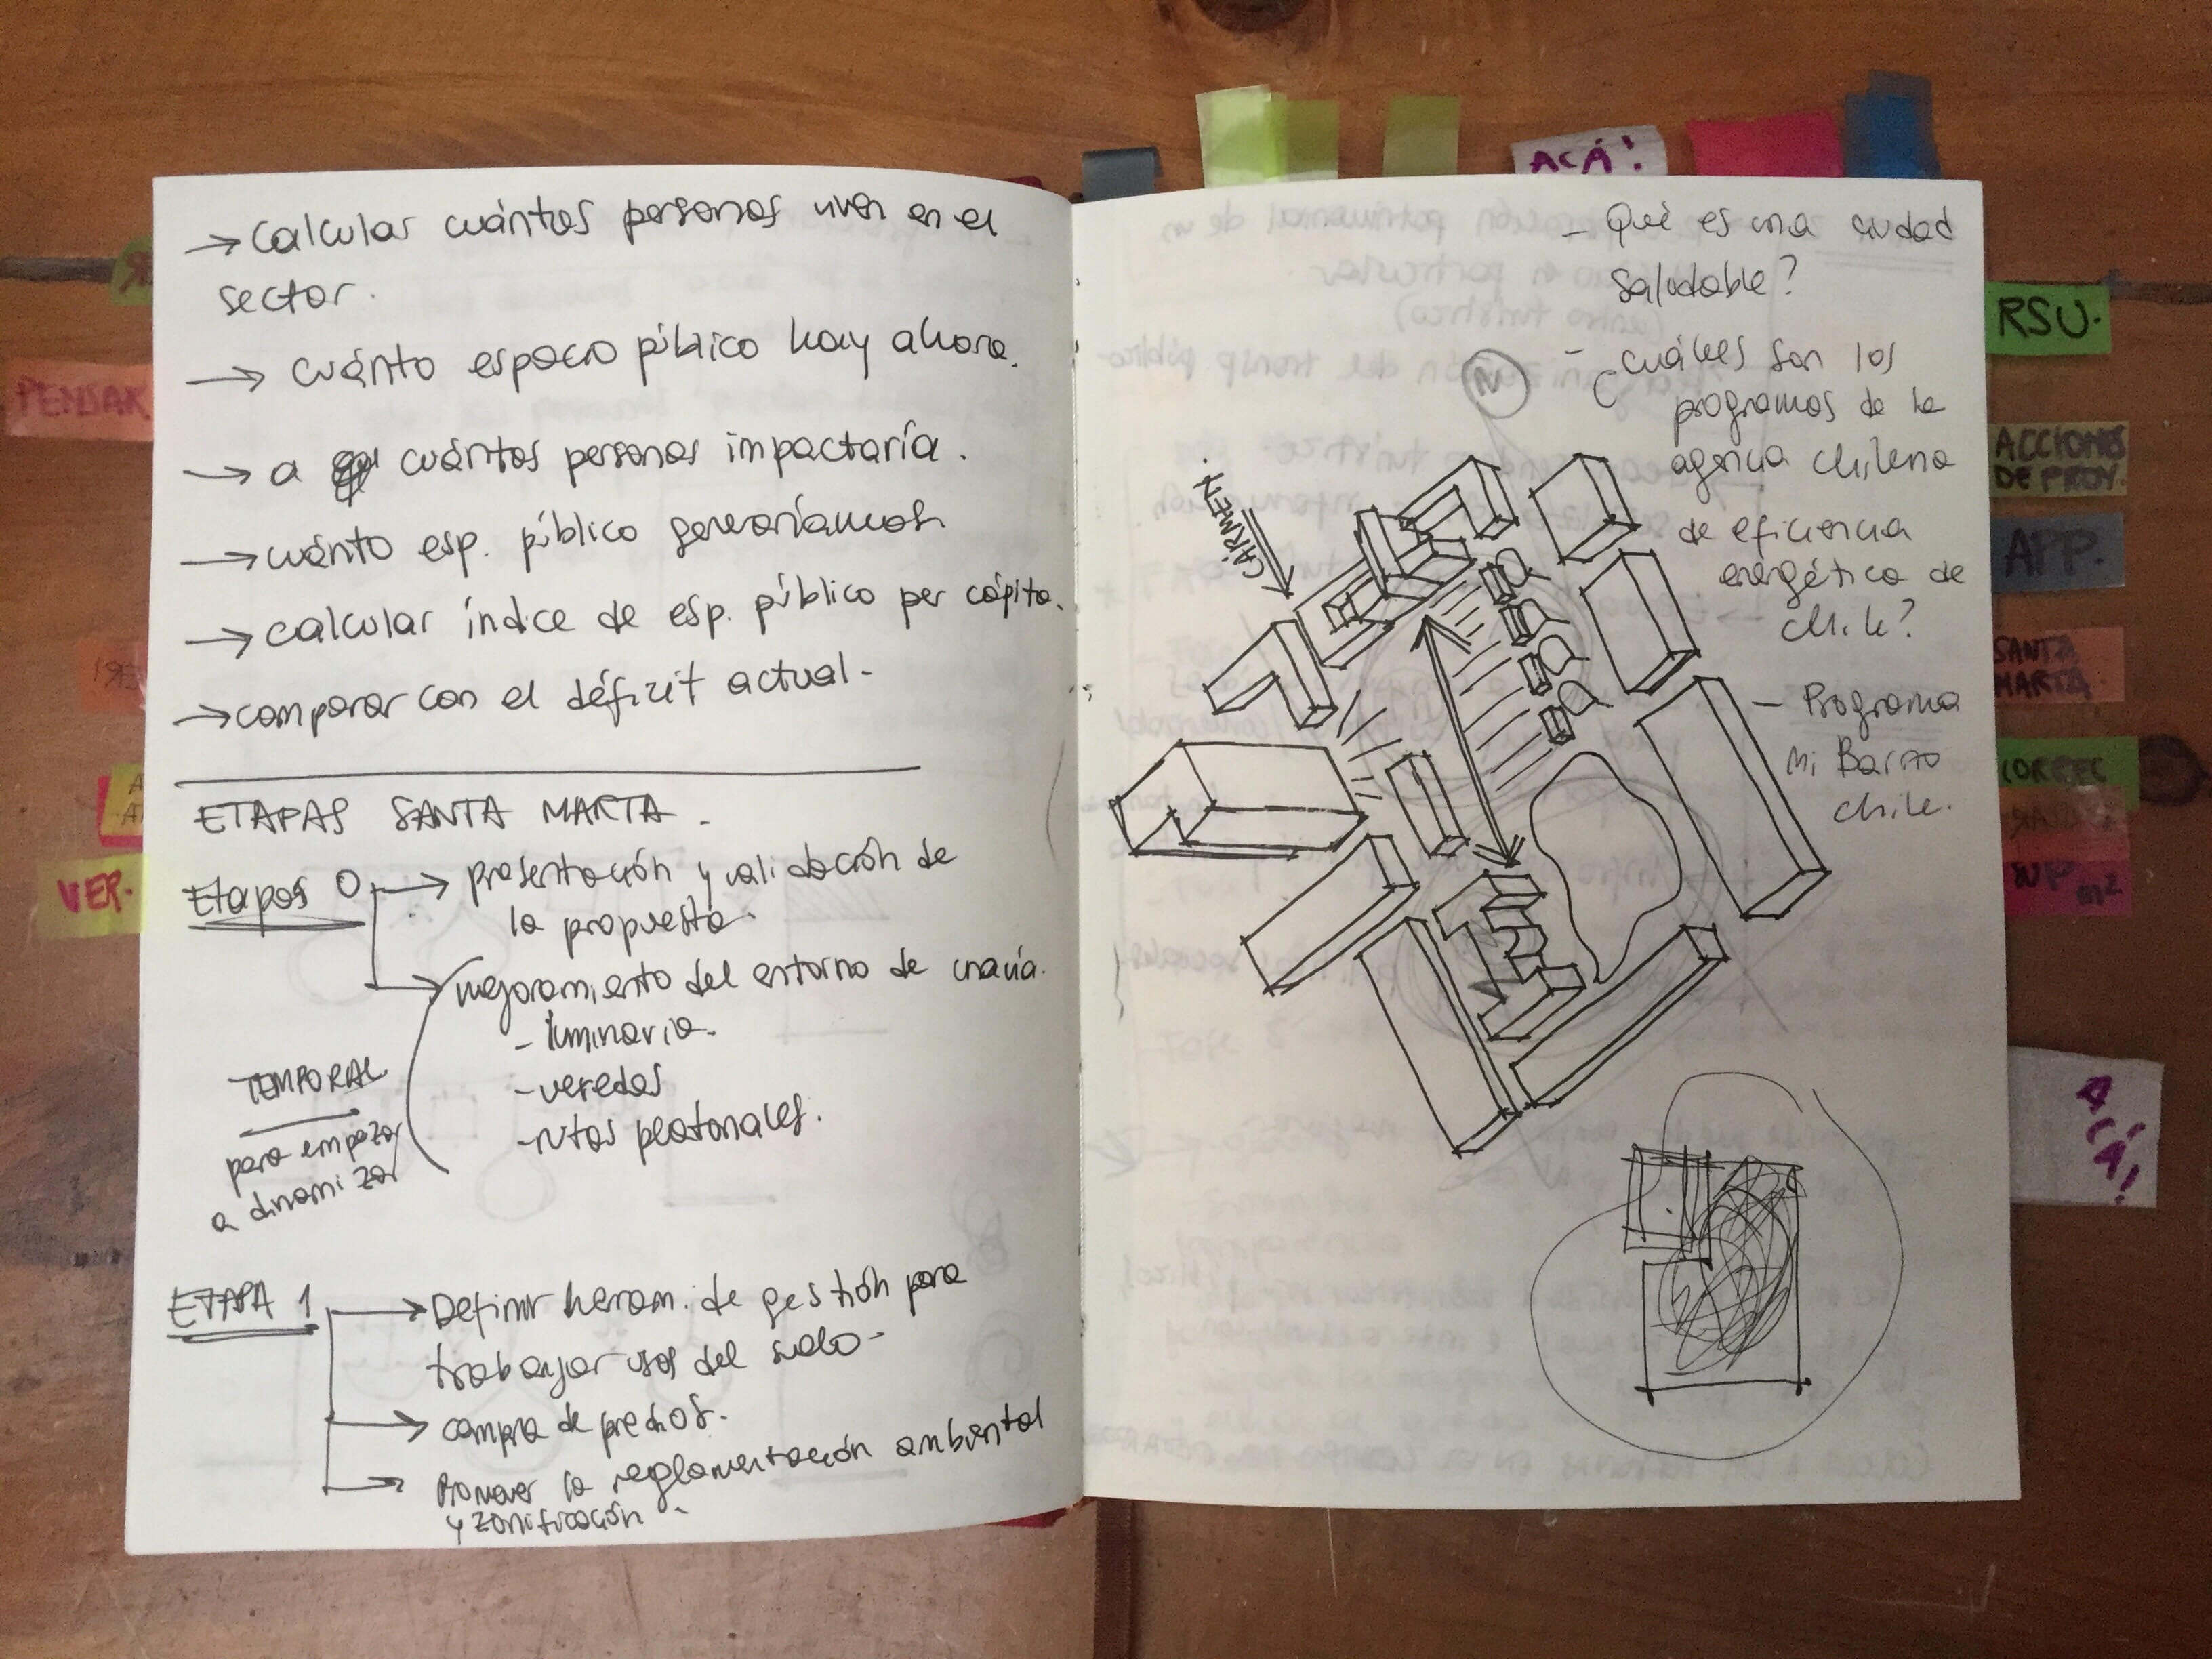 → Calcular cuántas personas viven en el
sector.
→ cuánto espacio público hay ahora.
→ a cuántas personas impactaría.
→ cuánto esp. público generaríamos
→ calcular índice de esp. público per cápita.
→ comparar con el déficit actual -
ETAPAS SANTA MARTA.
Etapas 0 → presentación y validación de
la propuesta.
→ mejoramiento del entorno de
- luminaria.
- veredas
- rutas peatonales.
TEMPORAL
para empezar
a dinamizar
ETAPA 1 → Definir herram. de gestión para
trabajar usos del suelo -
→ compra de predios.
→ Promover la reglamentación ambiental
y zonificación -
- Qué es una ciudad
saludable?
- ¿cuáles son los
programas de la
agencia chilena
de eficiencia
energética de
chile?
- Programa
mi Barrio
chile.
N
CÁRMEN.
ACÁ!
RSU.
ACCIONES
DE PROY.
APP.
SANTA
MARTA
CORREC
WP m²
ACÁ!
PENSAR
VER.